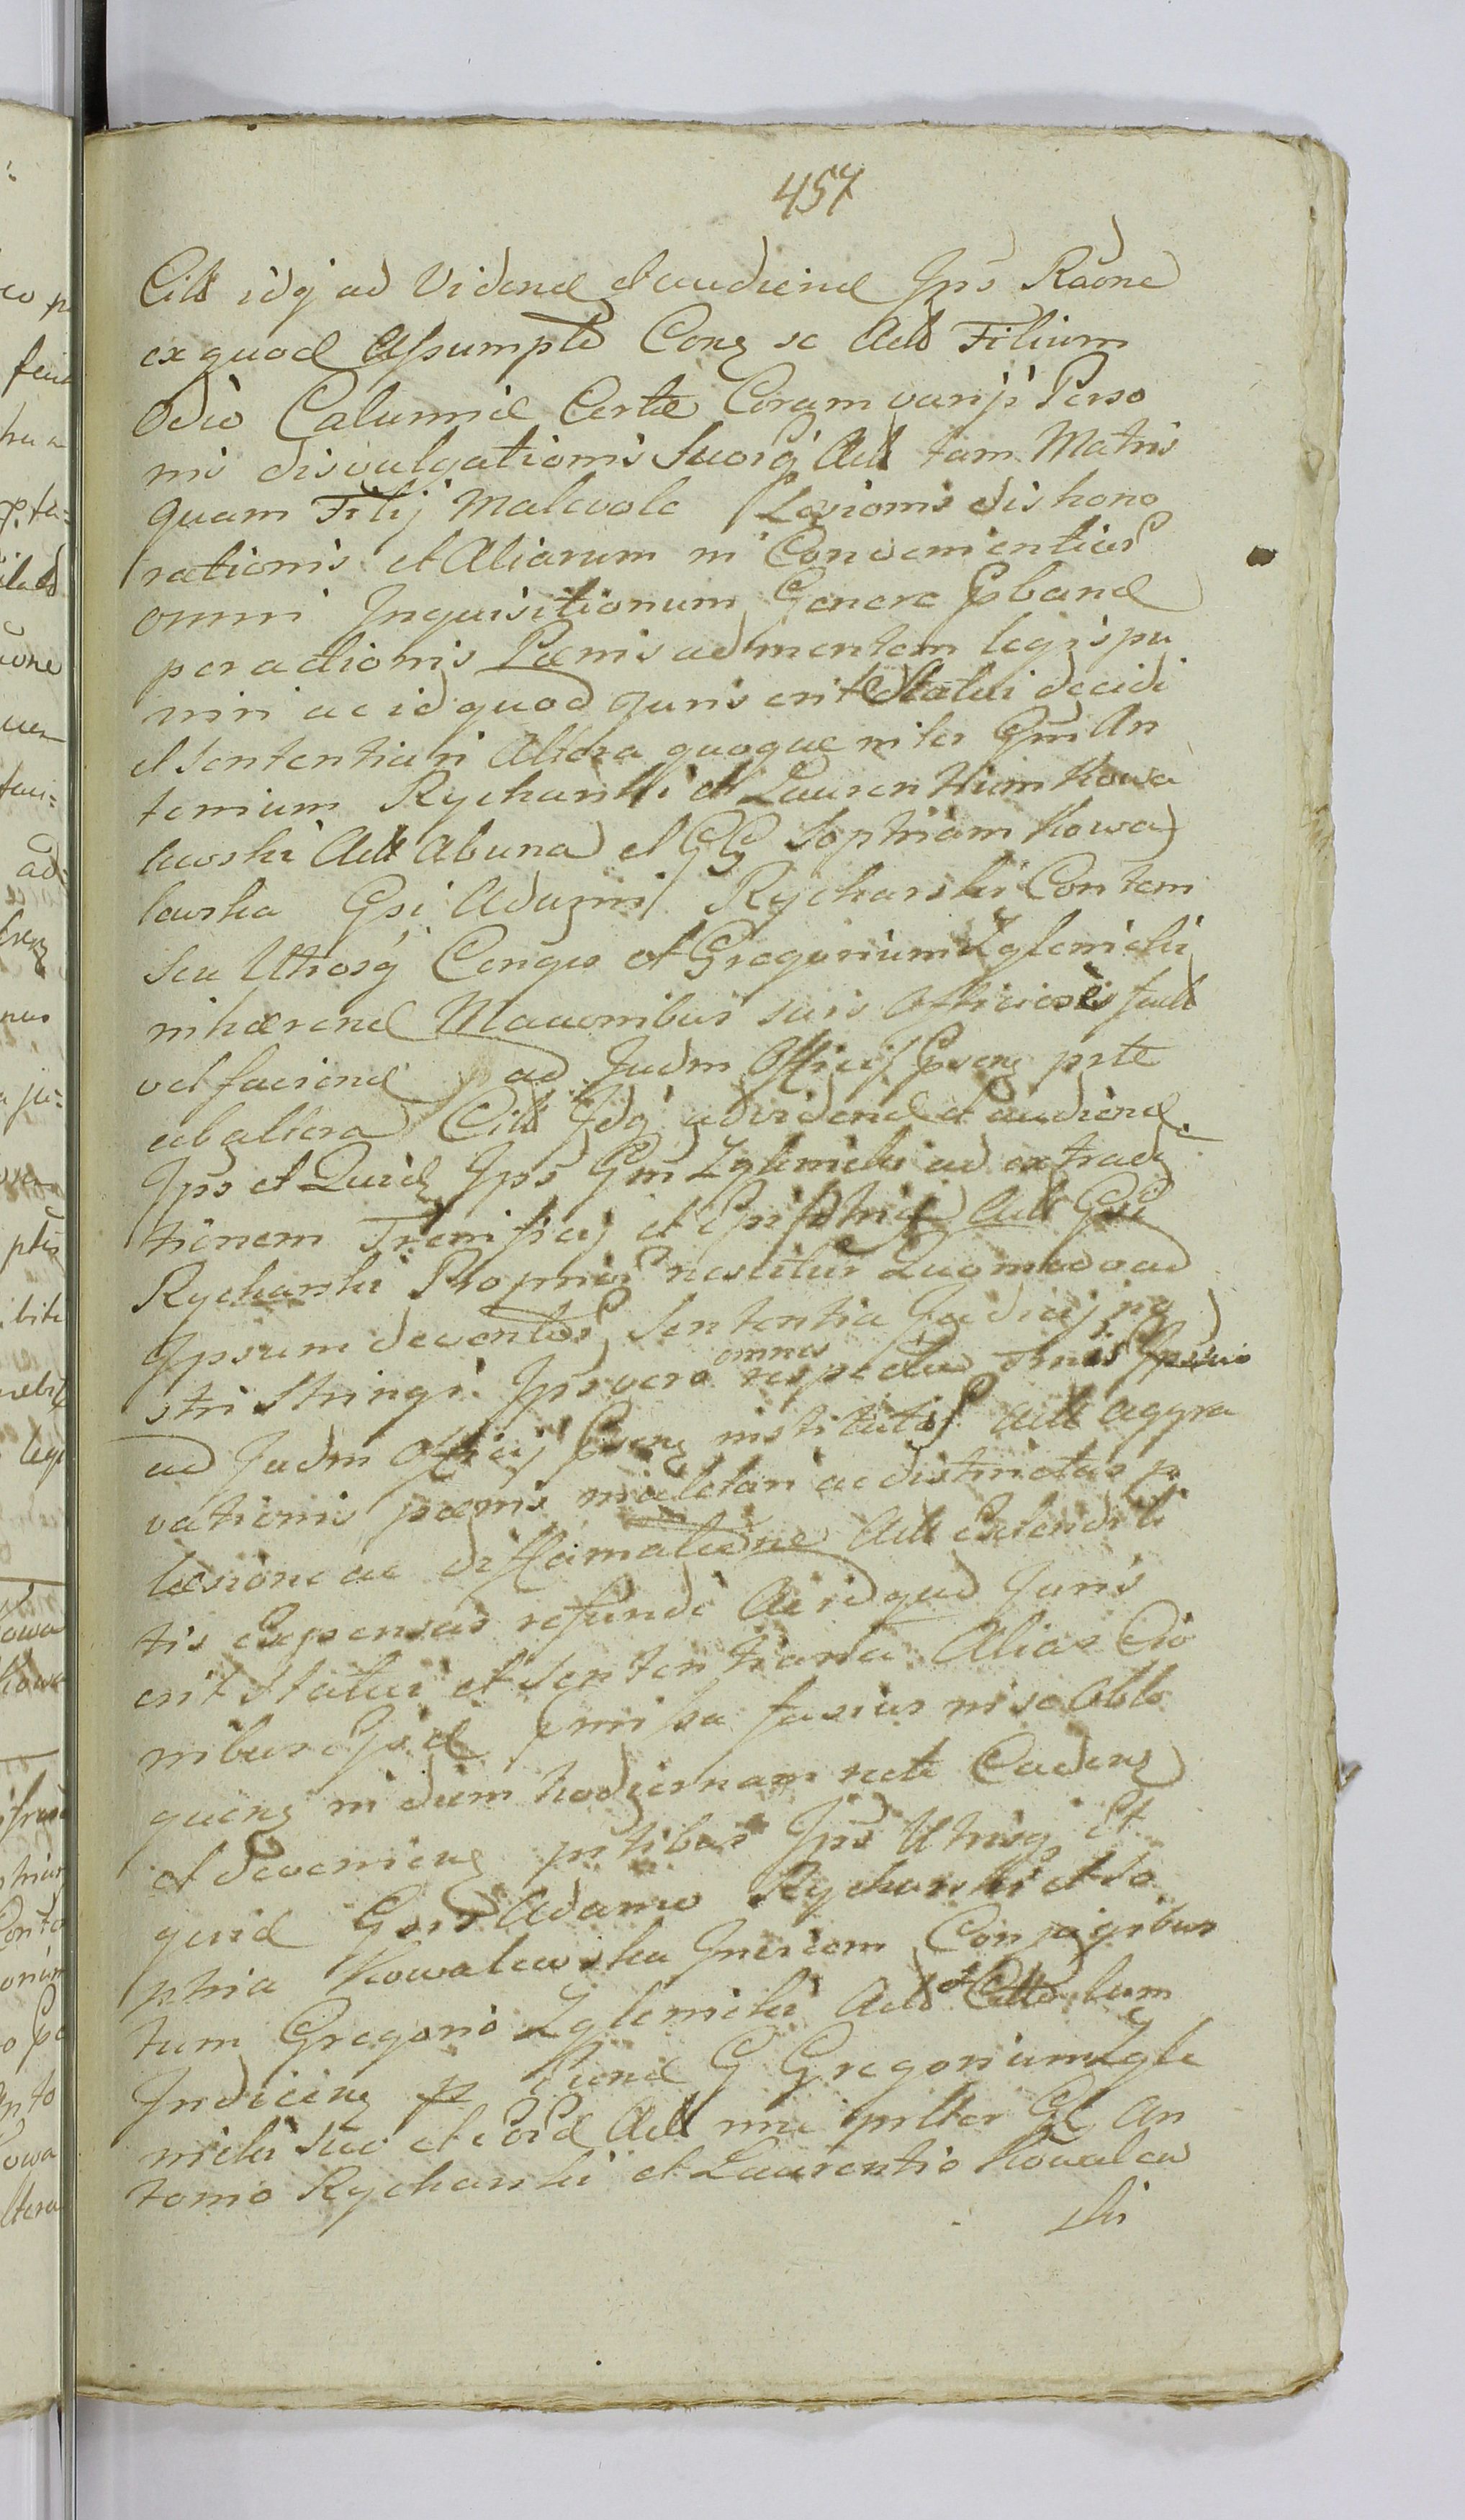 457
Citt idq ad Vidend et audiend Jps Raone
ex quod Assumpto Conz se Act Filium
Odio Calumnie Certe Coram varijs Perso
nis disvulgationis Suorq Act tam Matris
quam Filij Malevole Laesionis dishono
rationis et Aliarum in Convenientias
omni Inquisitionum Genere band
peractionis Poenis ad mentem legis pu
niri ac id quod Juris erit Statui decidi
et sententiari Altera quoque inter Gm An
tonium Rycharski et Laurentium Kowa
lewski Act ab una et GG Sophiam Kowa
lewska Gsi Adami Rycharski Contem
seu Utrosq Conges et Gregorium Zglenicki
inhaerend Maaonibus suis Officiosis fact
vel faciend ad Judm Officij prte
ab altera Citt Jdq ad vidend et audiend
Jps et Quid Jps Gm Zglenicki ad extradi
tionem et Act Gsi
Rycharski Proprias nesciitur Quomodo ad
Ipsum deventas Sententia Judicij no
stri Stringi Jps vero omnes respectu
ad Judm Officij institutas Act aggra
vationis poenis mulctari ac distinctas p
laesione ac diffamatione Act Extendi li
tis Expensas refundi Ac id quod Juris
erit Statui et Sententiari Alias Cio
nibus Ejsd fusius in se Obllo
quenz in diem hodiernam recte Cadenz
et Devenienz ptibus Jps Utrisq et
quid Gsis Adamo Rycharski et So
phia Kowalewska Invicem Conjugibus
tum Gregorio Zglenicki Act et Citto tum
Indicenz p G Gregorium Zgle
nicki suo et Eord Act nne prltter GG An
tonio Rycharski et Laurentio Kowalew
ski